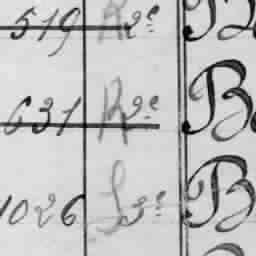 519 R 2e B
631 R 9e B
1026 L 3e B